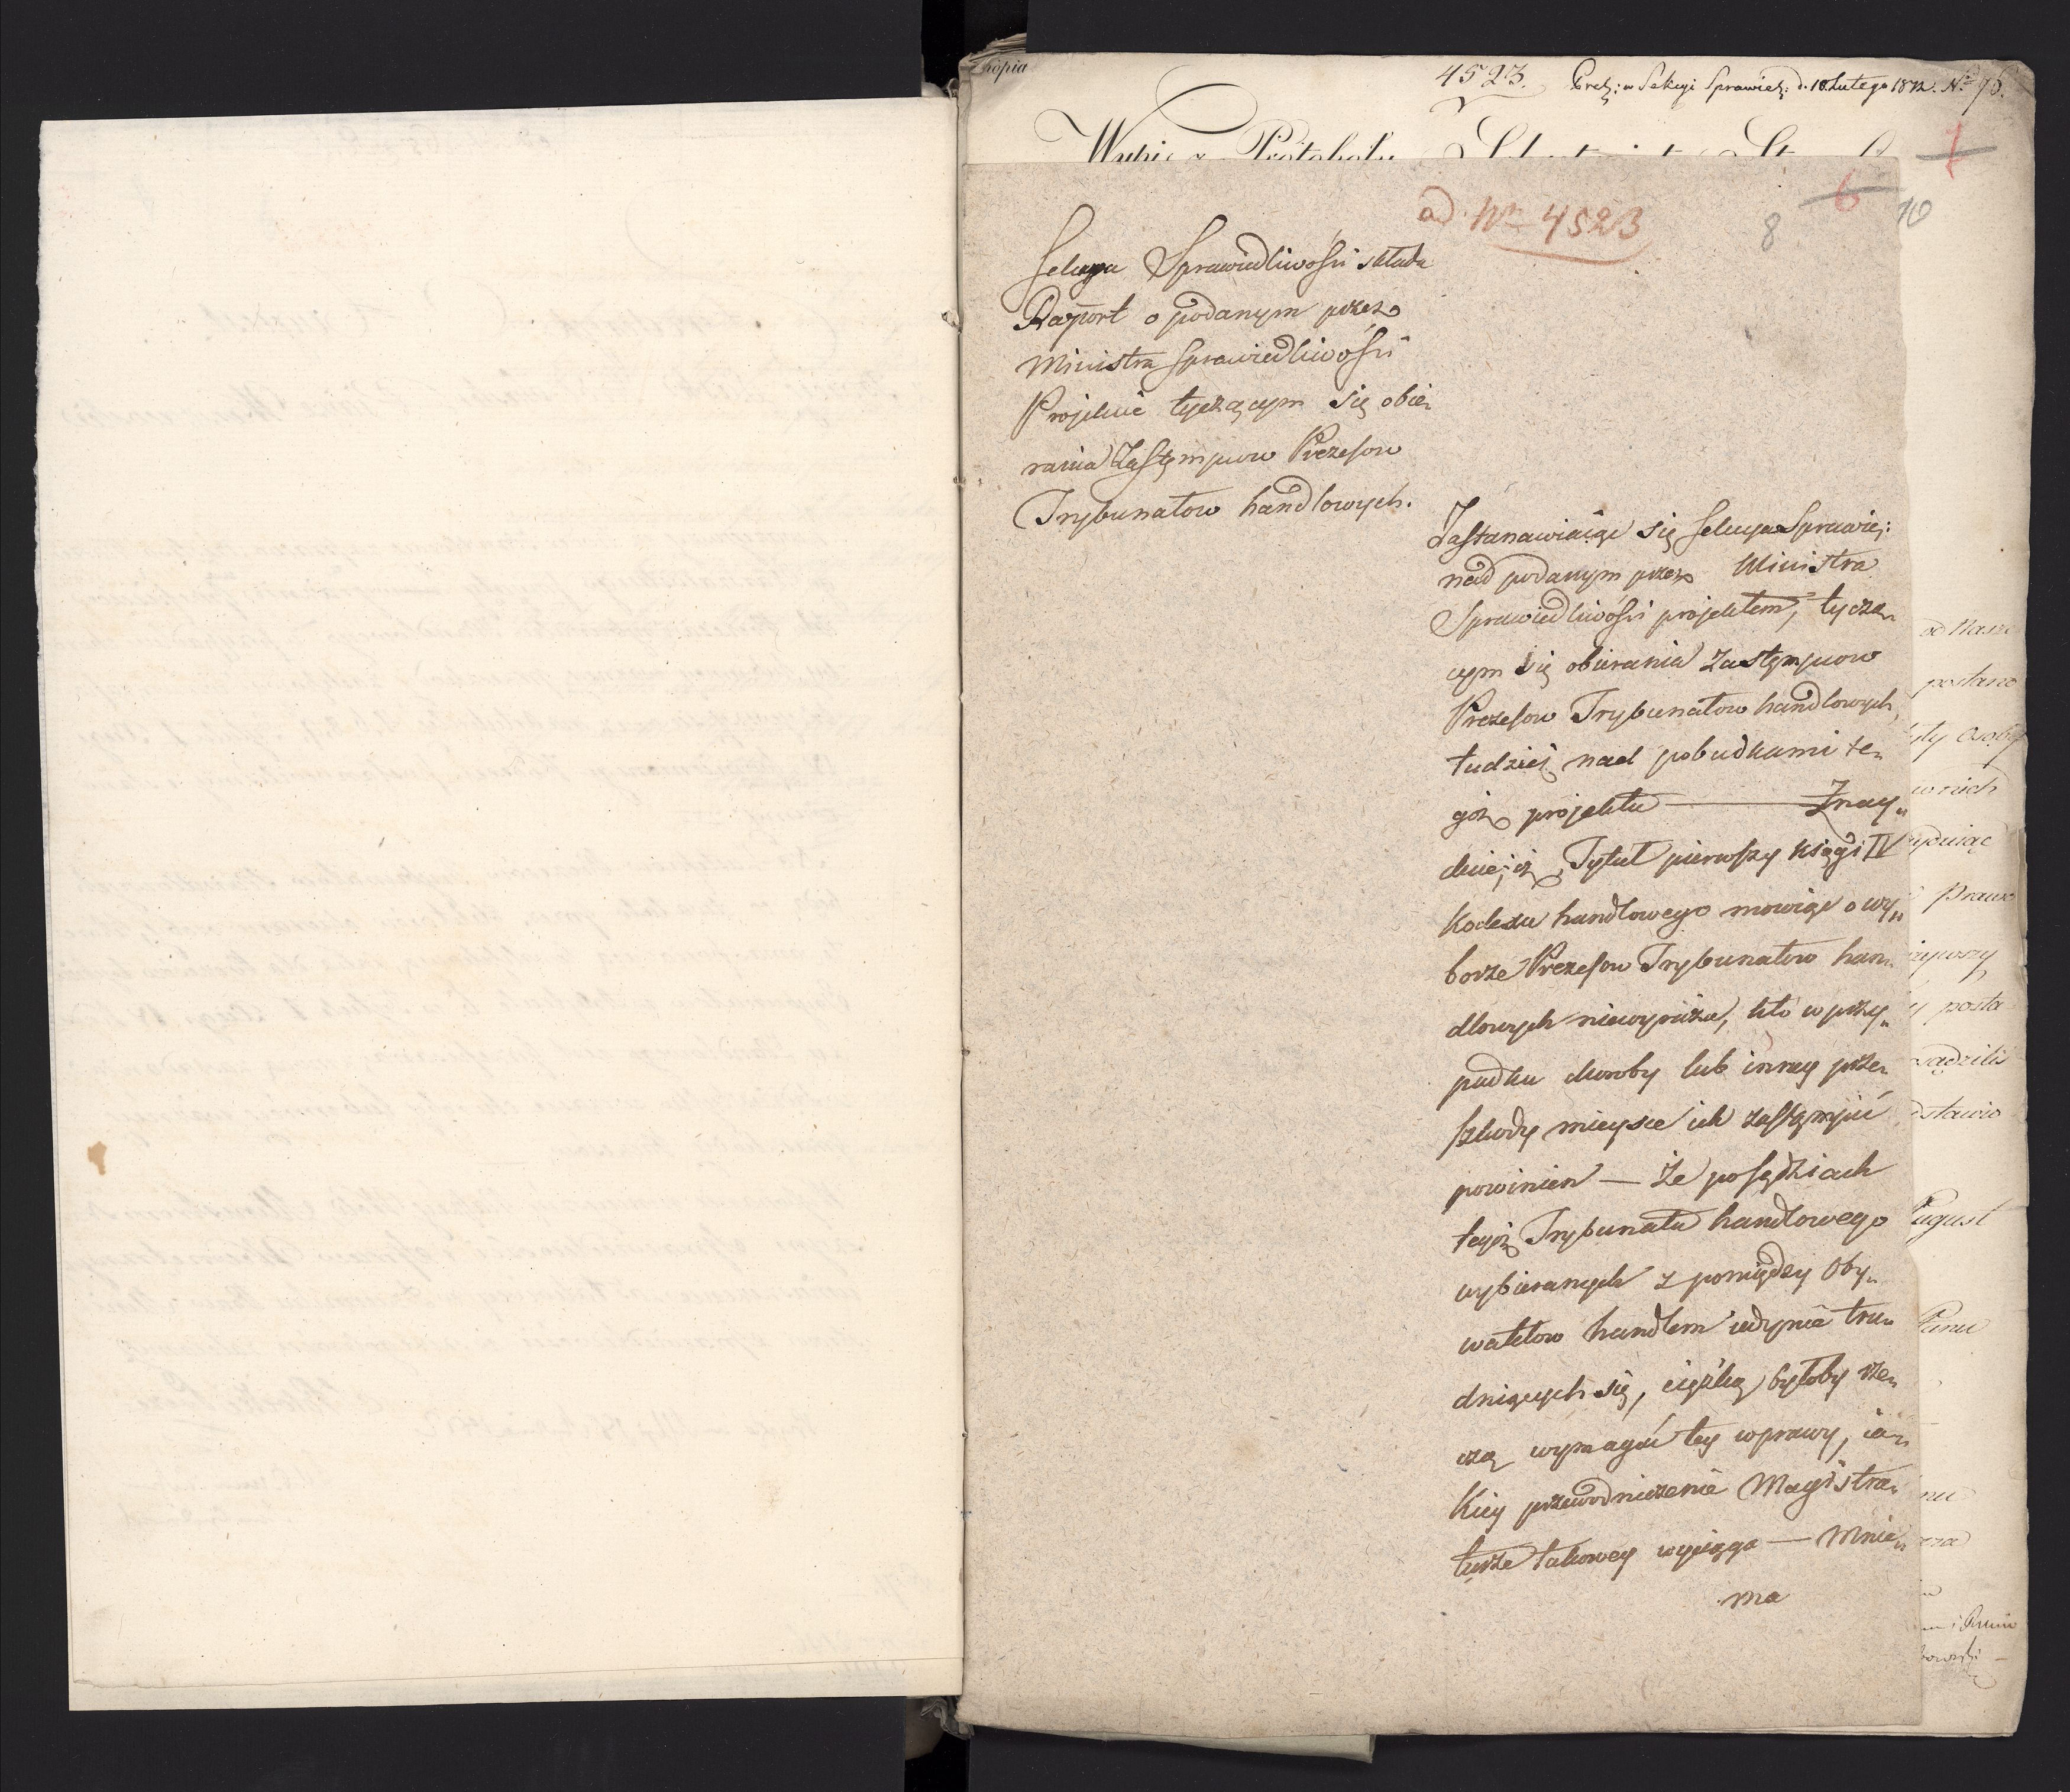 Kopia
4523. Prez: w Sekcyi Sprawied: d. 10. Lutego 1812. Nro 76.
1
Wypis z Protokołu Sekretariatu Stanu
ad Nm 4523
6
8
10
Sekcya Sprawiedliwości składa
Raport o podanym przez
Ministra Sprawiedliwości
Projekcie tyczącym się obie„
rania Zastępców Prezesow
Trybunałow handlowych.
Zastanawiaiąc się Sekcya Sprawie:
nad podanym przez Ministra
Sprawiedliwości projektem, tyczą„
cym się obierania Zastęmpcow
Prezesow Trybunałow handlowych,
tudzież nad pobudkami te„
goż projektu — Znay„
duie; iż Tytuł pierwszy księgi IV
Kodexu handlowego mowiąc o wy„
borze Prezesow Trybunałow han„
dlowych niewyraża, kto w przy„
padku choroby lub inney prze„
szkody mieysce ich zastąmpić
powinien — Że po sędziach
tegoż Trybunału handlowego
wybieranych z pomiędzy Oby„
watelow handlem iedynie tru„
dniących się, ciężką byłoby rze„
czą wymagać tey wprawy, ia„
kiey przewodniczenie Magistra„
turze takowey wyciąga — Mnie„
ma
od Nasze
postano
yły osoby
w nich
Prawo
y posta
sądzili
dstawio
August
Panu